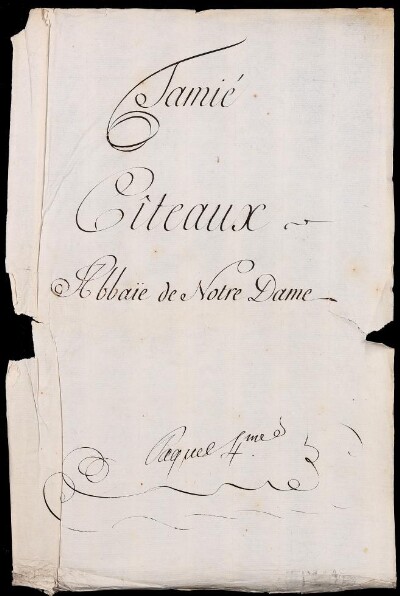 Tamié
Cîteaux
Abbaïe de Notre Dame
Paquet 4.me